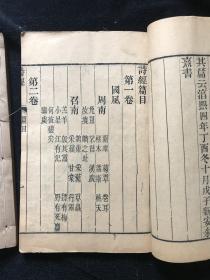 其篇云淳熙四年丁酉冬十月戊子新安
熹書
詩經篇目
第一卷
國風
周南
關雎 葛覃 卷耳
樛木 螽斯 桃夭
兔罝 芣苢 漢廣
汝墳 麟之趾
召南
鵲巢 采蘩 草蟲
采蘋 甘棠 行露
羔羊 殷其靁 摽有梅
小星 江有汜 野有死麕
何彼襛矣
騶虞
第二卷